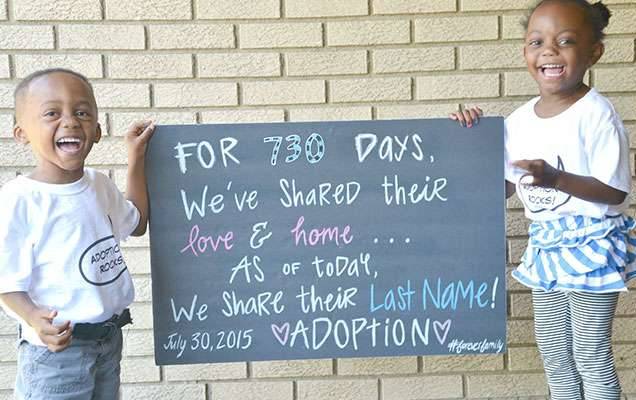 FOR 730 DAYS,
We've SHARED their
love & home ...
AS OF toDAY,
We SHARe their LAST NAMe!
July 30, 2015 ♡ADOPTION♡
ADOPTION
ROCKS!
ADOPTION
ROCKS!